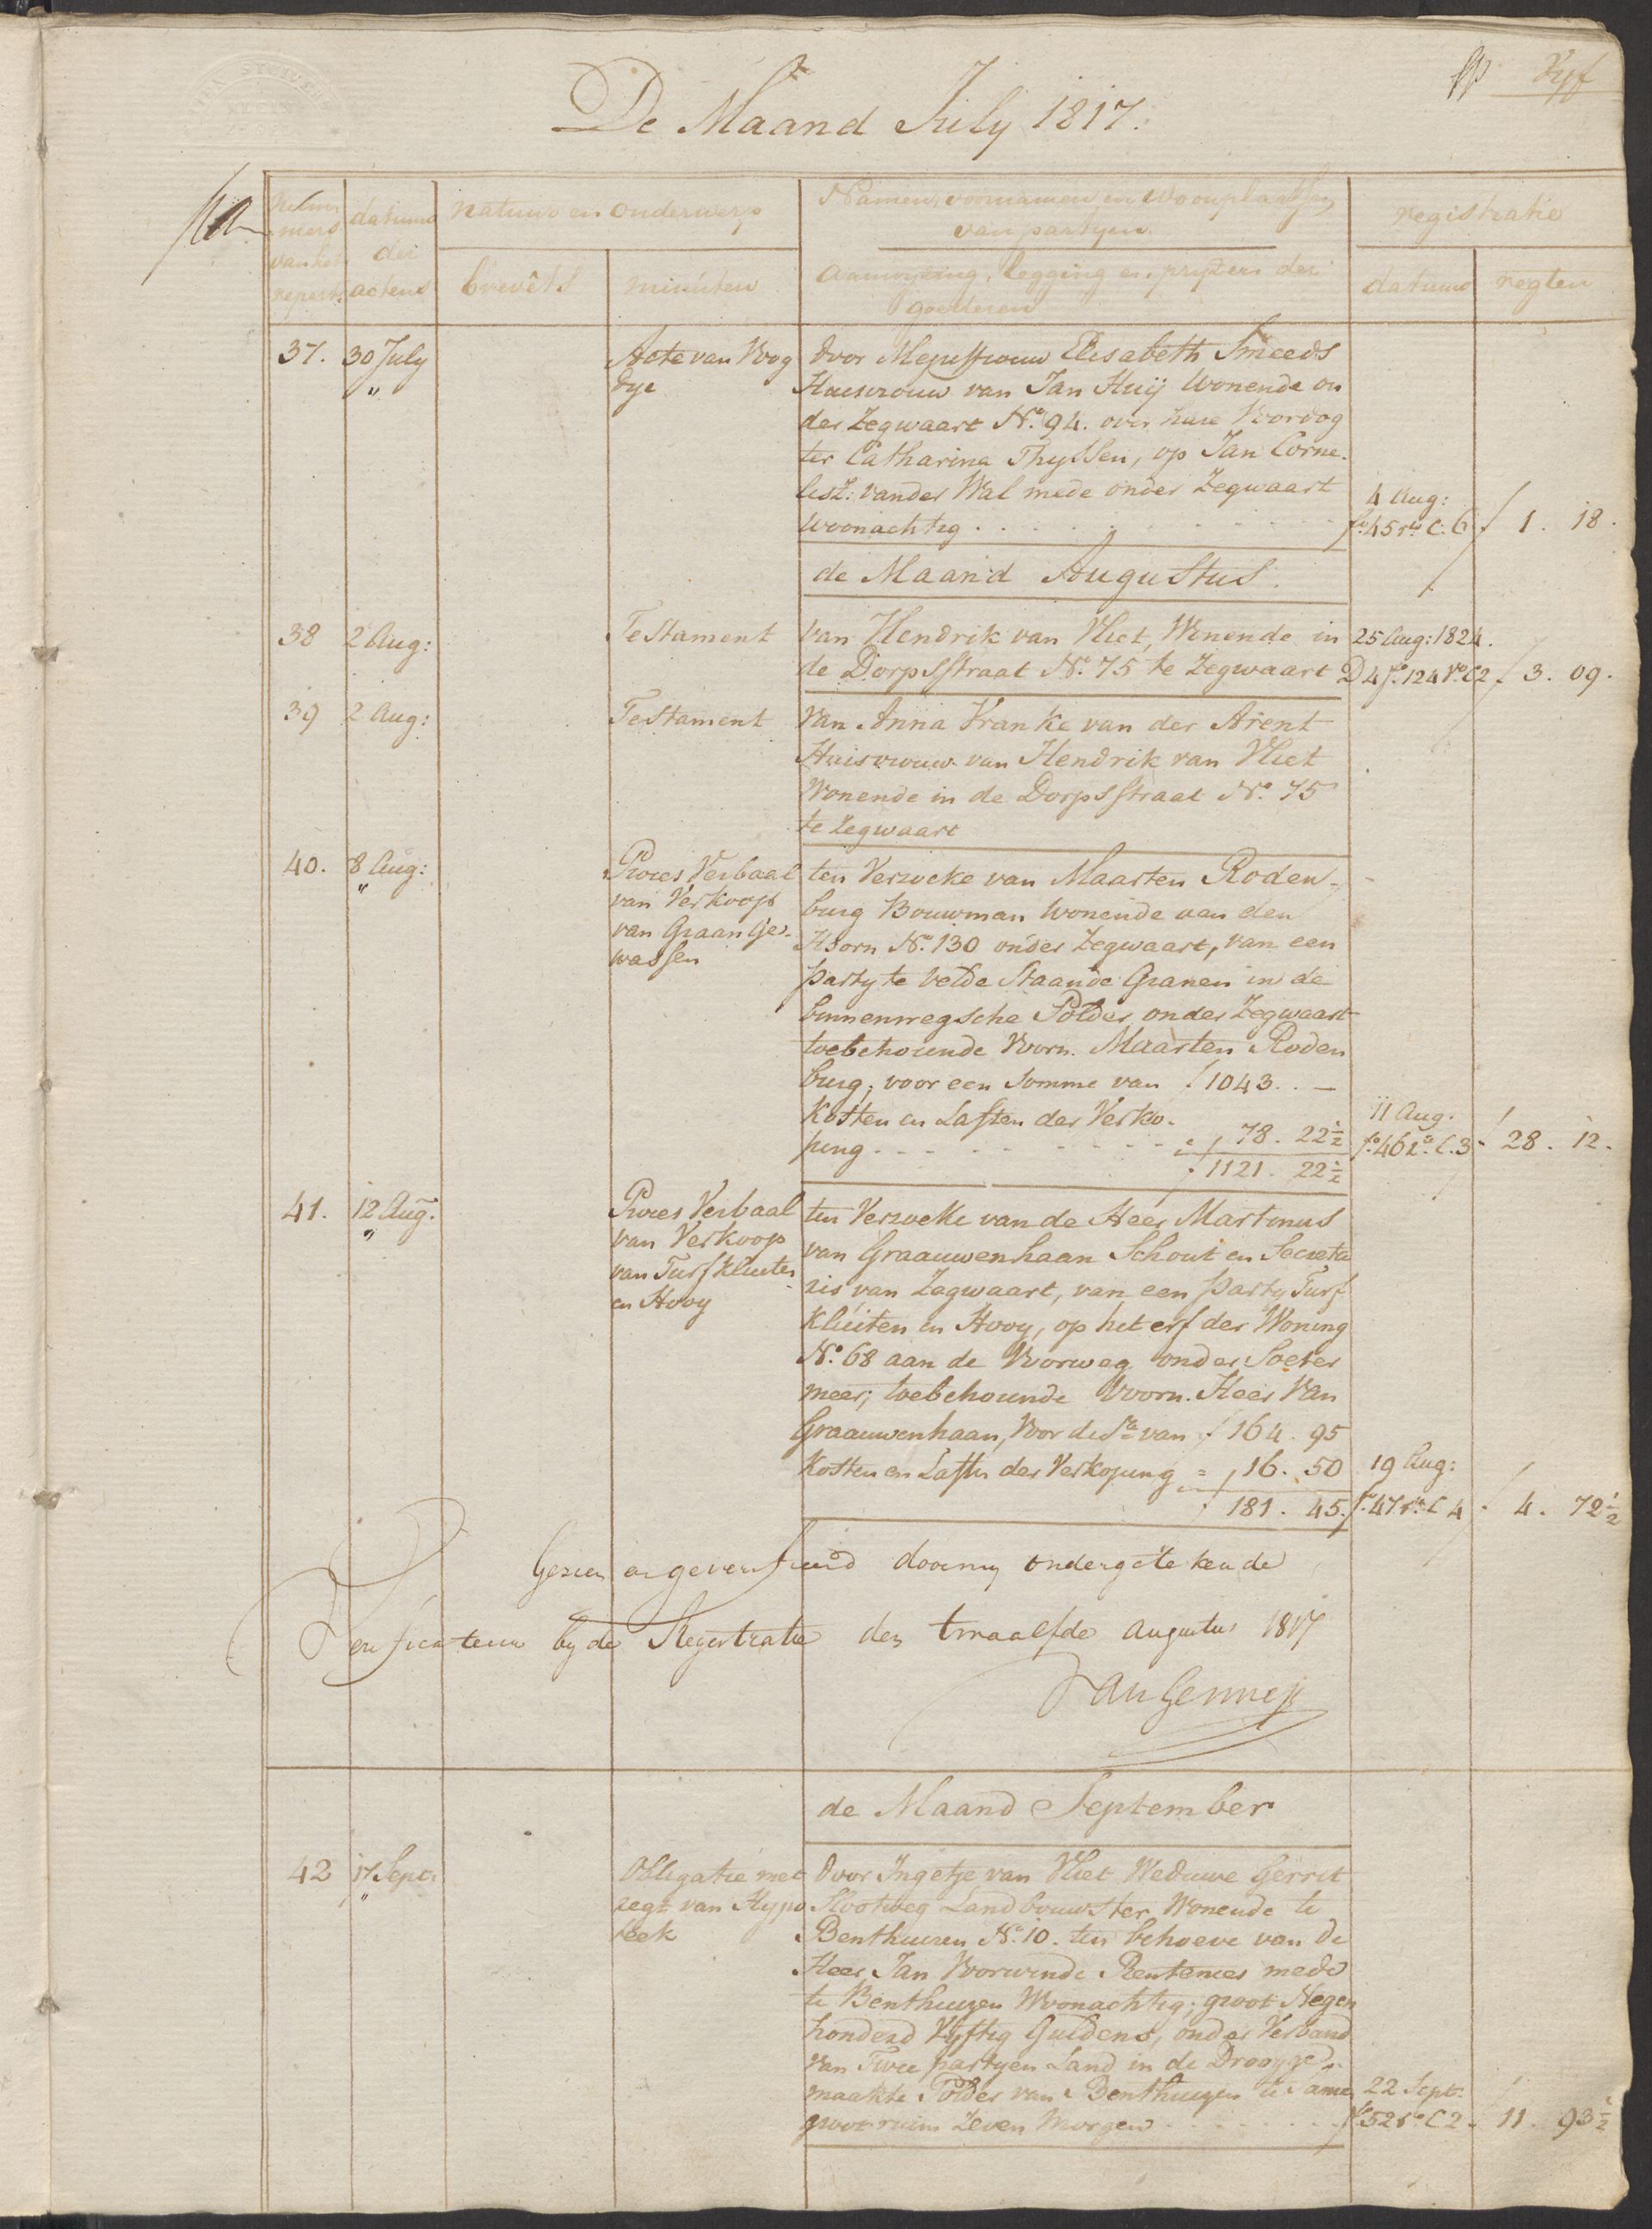 Vyf
De Maand July 1817.
Num
mers
van het
repert:
datums
der
actens
natuur en onderwerp
brevêts
minuten
Namen, voornamen en woonplaatsen
van partyen.
aanwyzing, legging en pryzen der
goederen
registratie
datums
regten
37.
30 July
"
Acte van Voog
dye
door Mejuffrouw Elisabeth Smeeds
Huisvrouw van Jan Huij Wonende on
der Zegwaart No. 94. over hare Voordog
ter Catharina Thyssen, op Jan Corne.
lisz: vander Wal mede onder Zegwaart
woonachtig
4 Aug:
fo. 45 ro C. 6
f 1. 18.
de Maand Augustus.
38
2 Aug:
Testament
van Hendrik van Vliet, Wonende in
de Dorpsstraat No. 75 te Zegwaart
25 Aug: 1824.
D 4 fo. 124 Vo. C2
f 3. 09.
39
2 Aug:
Testament
Van Anna Franke van der Arent
Huisvrouw van Hendrik van Vliet
Wonende in de Dorpsstraat No. 75
te Zegwaart
40.
8 Aug:
"
Proces Verbaal
van Verkoop
van Graan Ge-
wassen
ten Verzoeke van Maarten Roden-
burg Bouwman Wonende aan den
Hoorn No. 130 onder Zegwaart, van een
party te velde Staande Granen in de
binnenwegsche Polder onder Zegwaart
toebehorende Voorn. Maarten Roden
burg; voor een Somme van f 1043. . —
Kosten en Lasten der Verko-
ping - - - - - - - " 78. 22½
f 1121. 22½
11 Aug.
fo. 46 ro. C. 3
f 28. 12.
41.
12 Aug:
"
Proces Verbaal
van Verkoop
van Turf kluiten
en Hooy
ten Verzoeke van de Heer Martinus
van Graauwenhaan Schout en Secreta
ris van Zegwaart, van een party Turf
Kluiten en Hooy, op het erf der Woning
No. 68 aan de Voorweg onder Soeter
meer; toebehorende Voorn. Heer Van
Graauwenhaan, Voor de Sa van f 164. 95
Kosten en Lasten der Verkoping = 16. 50
f 181. 45.
19 Aug:
fo. 47 ro. C 4
f 4. 72½
Gezien en geverifieerd door my ondergetekende
Verificateur by de Registratie den twaalfde augustus 1817
Van Gennep
de Maand September
42
17 Sept:
"
Obligatie met
regt van Hypo
teek
door Ingetje van Vliet Weduwe Gerrit
Slootweg Landbouwster Wonende te
Benthuizen No. 10. ten behoeve van de
Heer Jan Voorwinde Rentenier mede
te Benthuizen Woonachtig; groot Negen
honderd Vyftig Guldens, onder Verband
van Twee partyen Land in de Drooge-
maakte Polder van Benthuizen te Same
groot ruim Zeven Morgen
22 Sept:
fo. 52 ro C 2
f 11. 93½